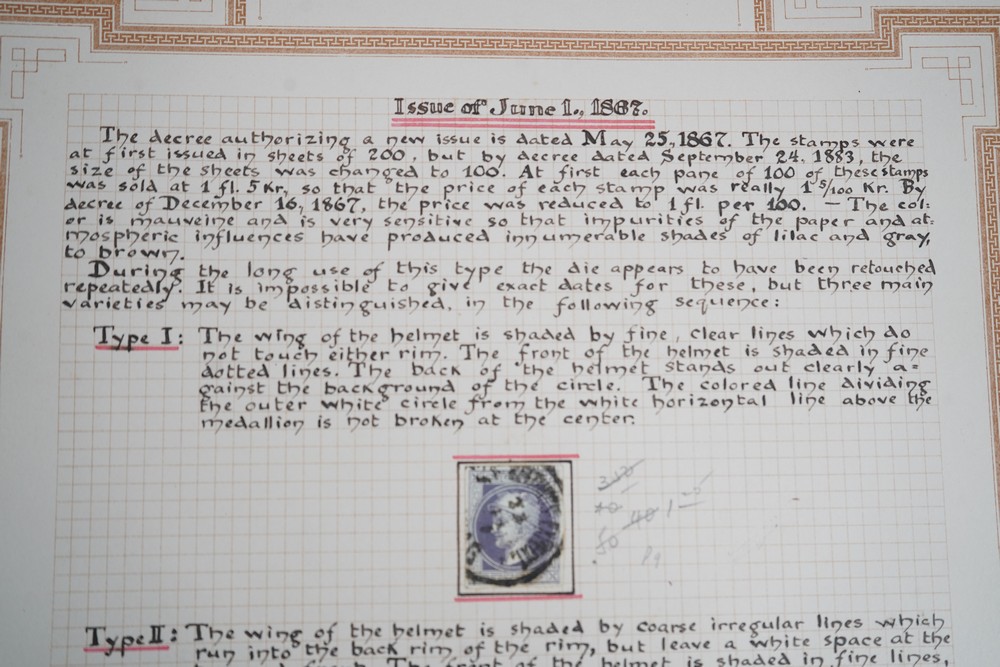 Issue of June 1., 1867.
The decree authorizing a new issue is dated May 25, 1867. The stamps were
at first issued in sheets of 200, but by decree dated September 24, 1883, the
size of the sheets was changed to 100. At first each pane of 100 of these stamps
was sold at 1 fl. 5 Kr, so that the price of each stamp was really 1 5/100 Kr. By
decree of December 16, 1867, the price was reduced to 1 fl. per 100. — The col=
or is mauveine and is very sensitive so that impurities of the paper and at=
mospheric influences have produced innumerable shades of lilac and gray,
to brown.
During the long use of this type the die appears to have been retouched
repeatedly. It is impossible to give exact dates for these, but three main
varieties may be distinguished, in the following sequence:
Type I: The wing of the helmet is shaded by fine, clear lines which do
not touch either rim. The front of the helmet is shaded in fine
dotted lines. The back of the helmet stands out clearly a=
gainst the background of the circle. The colored line dividing
the outer white circle from the white horizontal line above the
medallion is not broken at the center.
Type II: The wing of the helmet is shaded by coarse irregular lines which
run into the back rim of the rim, but leave a white space at the
The front of the helmet is shaded in fine lines,